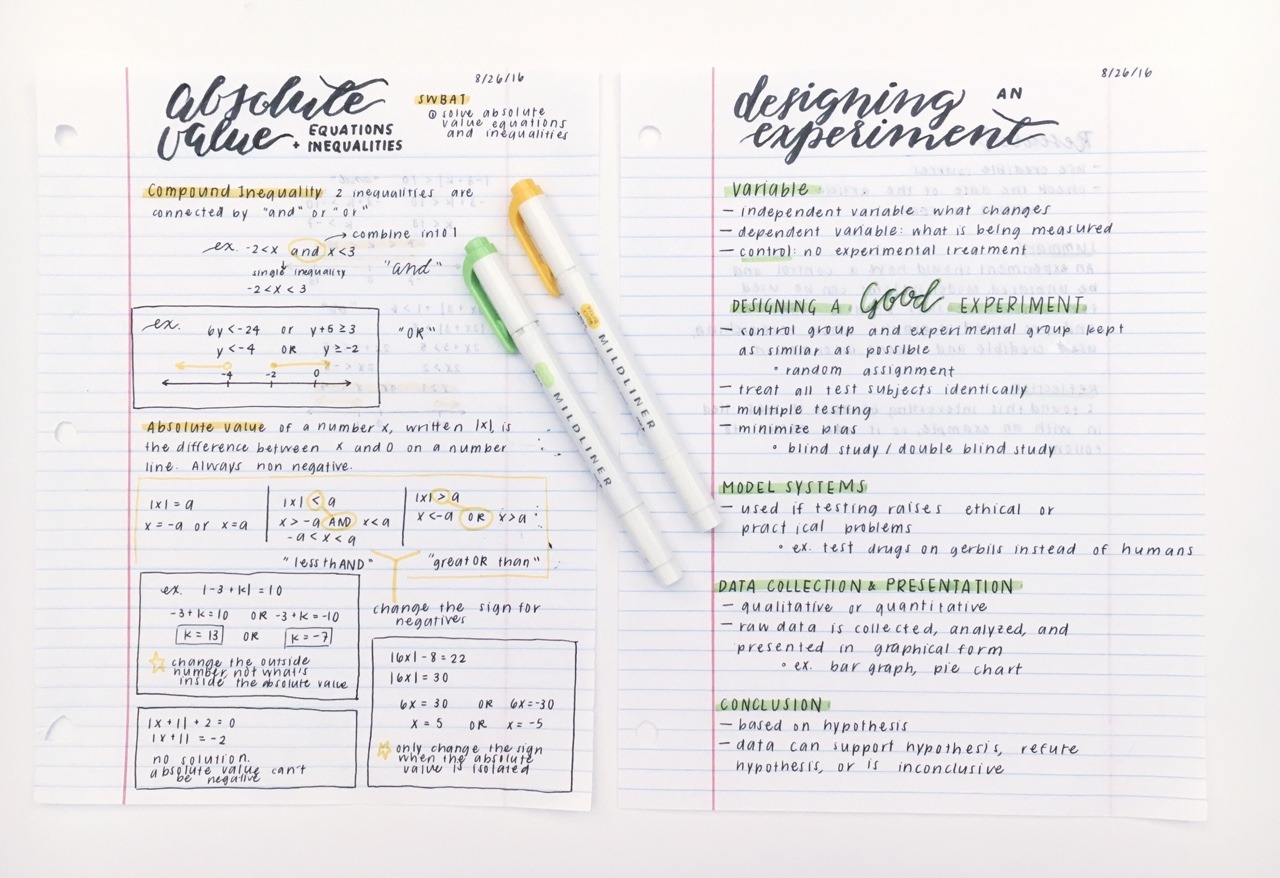 absolute
value + EQUATIONS
INEQUALITIES
8/26/16
SWBAT
① solve absolute
value equations
and inequalities
Compound Inequality 2 inequalities are
connected by "and" or "or"
→ combine into 1
ex. -2<x and x<3
single inequality
-2<x<3
"and"
ex. 6y <-24 or y+5≥3
y<-4 OR y≥-2
-4 -2 0
"OR"
Absolute value of a number x, written |x|, is
the difference between x and 0 on a number
line. Always non negative.
|x| = a
x=-a or x=a
|x| < a
x>-a AND x<a
-a<x<a
|x| > a
x<-a OR x>a
"less thAND"
"greatOR than"
change the sign for
negatives
ex. |-3+k| = 10
-3+k=10 OR -3+k=-10
k=13 OR k=-7
☆ change the outside
number, not what's
inside the absolute value
|x+1| + 2 = 0
|x+1| = -2
no solution.
absolute value can't
be negative
|6x| - 8 = 22
|6x| = 30
6x = 30 OR 6x=-30
x = 5 OR x=-5
☆ only change the sign
when the absolute
value is isolated
MILDLINER
MILDLINER
8/26/16
designing AN
experiment
Variable
- independent variable what changes
- dependent variable: what is being measured
- control: no experimental treatment
DESIGNING A Good EXPERIMENT
- control group and experimental group kept
as similar as possible
• random assignment
- treat all test subjects identically
- multiple testing
- minimize bias
• blind study / double blind study
MODEL SYSTEMS
- used if testing raises ethical or
practical problems
• ex. test drugs on gerbils instead of humans
DATA COLLECTION & PRESENTATION
- qualitative or quantitative
- raw data is collected, analyzed, and
presented in graphical form
• ex. bar graph, pie chart
CONCLUSION
- based on hypothesis
- data can support hypothesis, refute
hypothesis, or is inconclusive